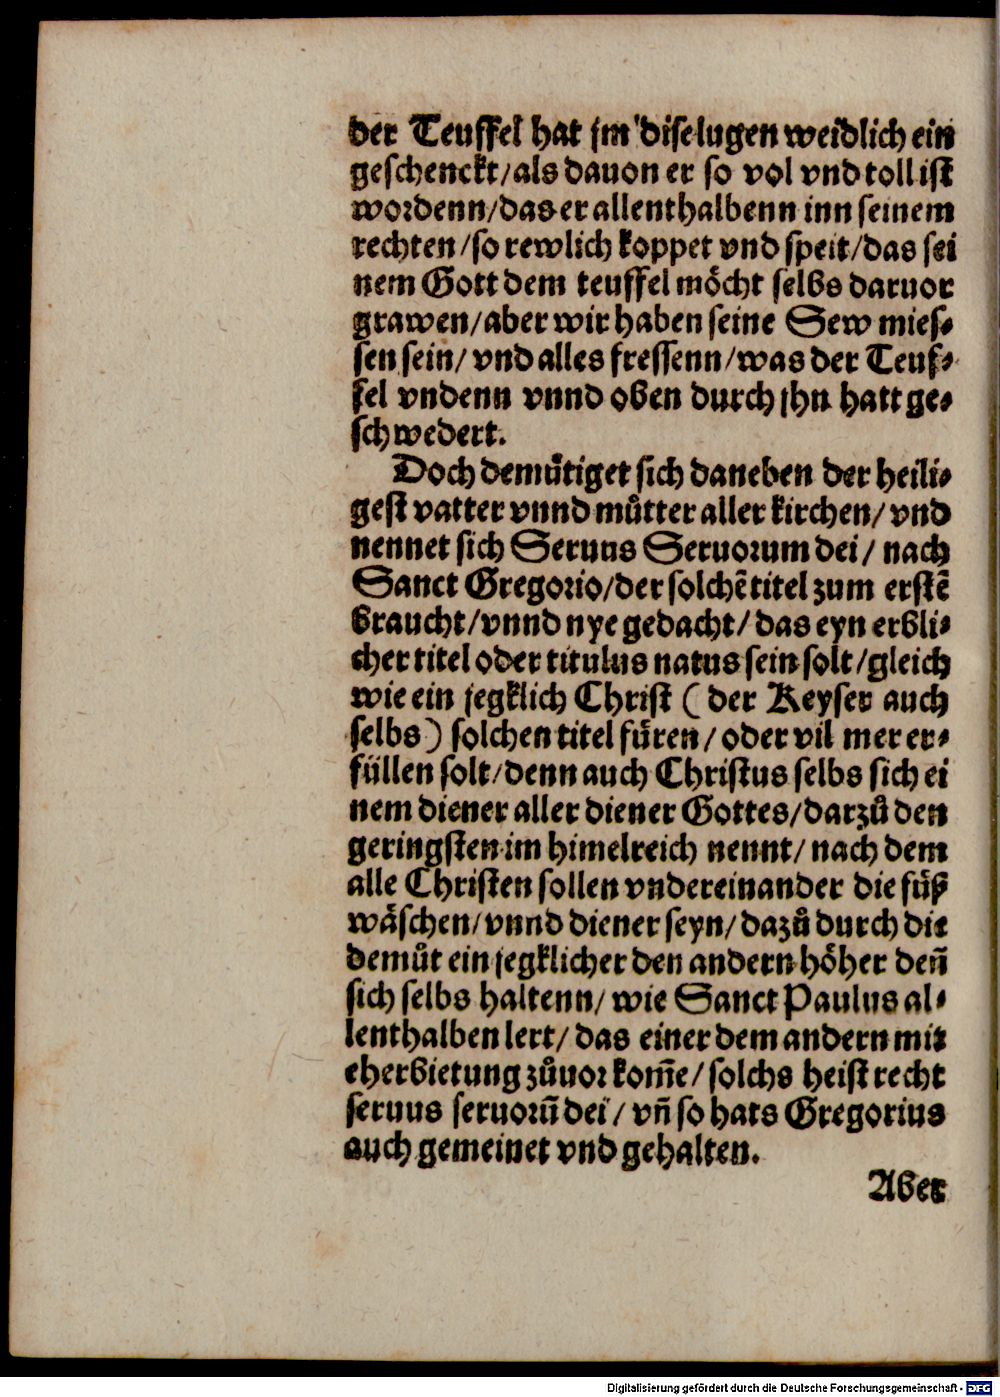 der Teuffel hat jm dise lugen weidlich ein
geschenckt/als dauon er so vol vnd toll ist
wordenn/das er allenthalbenn inn seinem
rechten/so rewlich koppet vnd speit/das sei
nem Gott dem teuffel möcht selbs daruor
grawen/aber wir haben seine Sew mies⸗
sen sein/ vnd alles fressenn/was der Teuf⸗
fel vndenn vnnd oben durch jhn hatt ge⸗
schwedert.
Doch demuͤtiget sich daneben der heili⸗
gest vatter vnnd muͦtter aller kirchen/ vnd
nennet sich Seruus Seruorum dei/ nach
Sanct Gregorio/der solchē titel zum erstē
braucht/vnnd nye gedacht/ das eyn erbli⸗
cher titel oder titulus natus sein solt/gleich
wie ein jegklich Christ ( der Keyser auch
selbs) solchen titel fuͤren/ oder vil mer er⸗
füllen solt/denn auch Christus selbs sich ei
nem diener aller diener Gottes/darzuͦ den
geringsten im himelreich nennt/ nach dem
alle Christen sollen vndereinander die fuͤß
wäschen/vnnd diener seyn/ dazuͦ durch die
demuͦt ein jegklicher den andern höher deñ
sich selbs haltenn/ wie Sanct Paulus al⸗
lenthalben lert/ das einer dem andern mit
eherbietung zuͦuor kom̃e/ solchs heist recht
seruus seruorū dei/ vñ so hats Gregorius
auch gemeinet vnd gehalten.
Aber
Digitalisierung gefördert durch die Deutsche Forschungsgemeinschaft - DFG